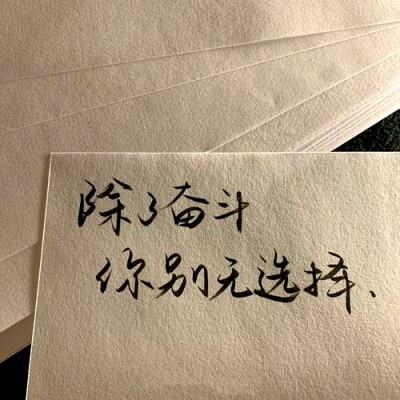 除了奋斗
你别无选择、